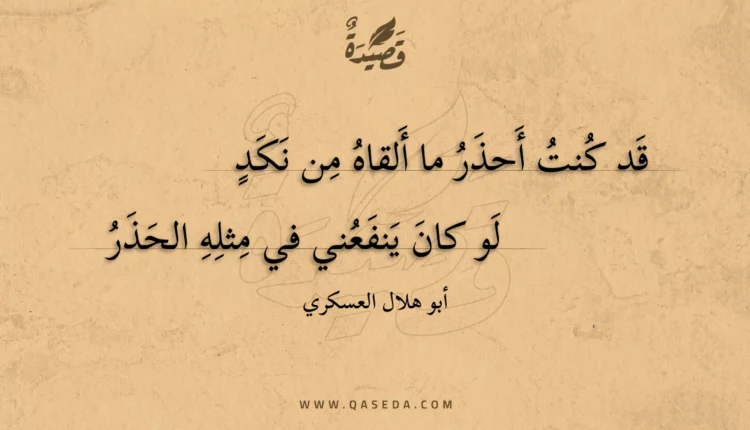 قَصِيْدَةٌ
قَد كُنتُ أَحذَرُ ما أَلقاهُ مِن نَكَدٍ
لَو كانَ يَنفَعُني في مِثلِهِ الحَذَرُ
أبو هلال العسكري
WWW.QASEDA.COM